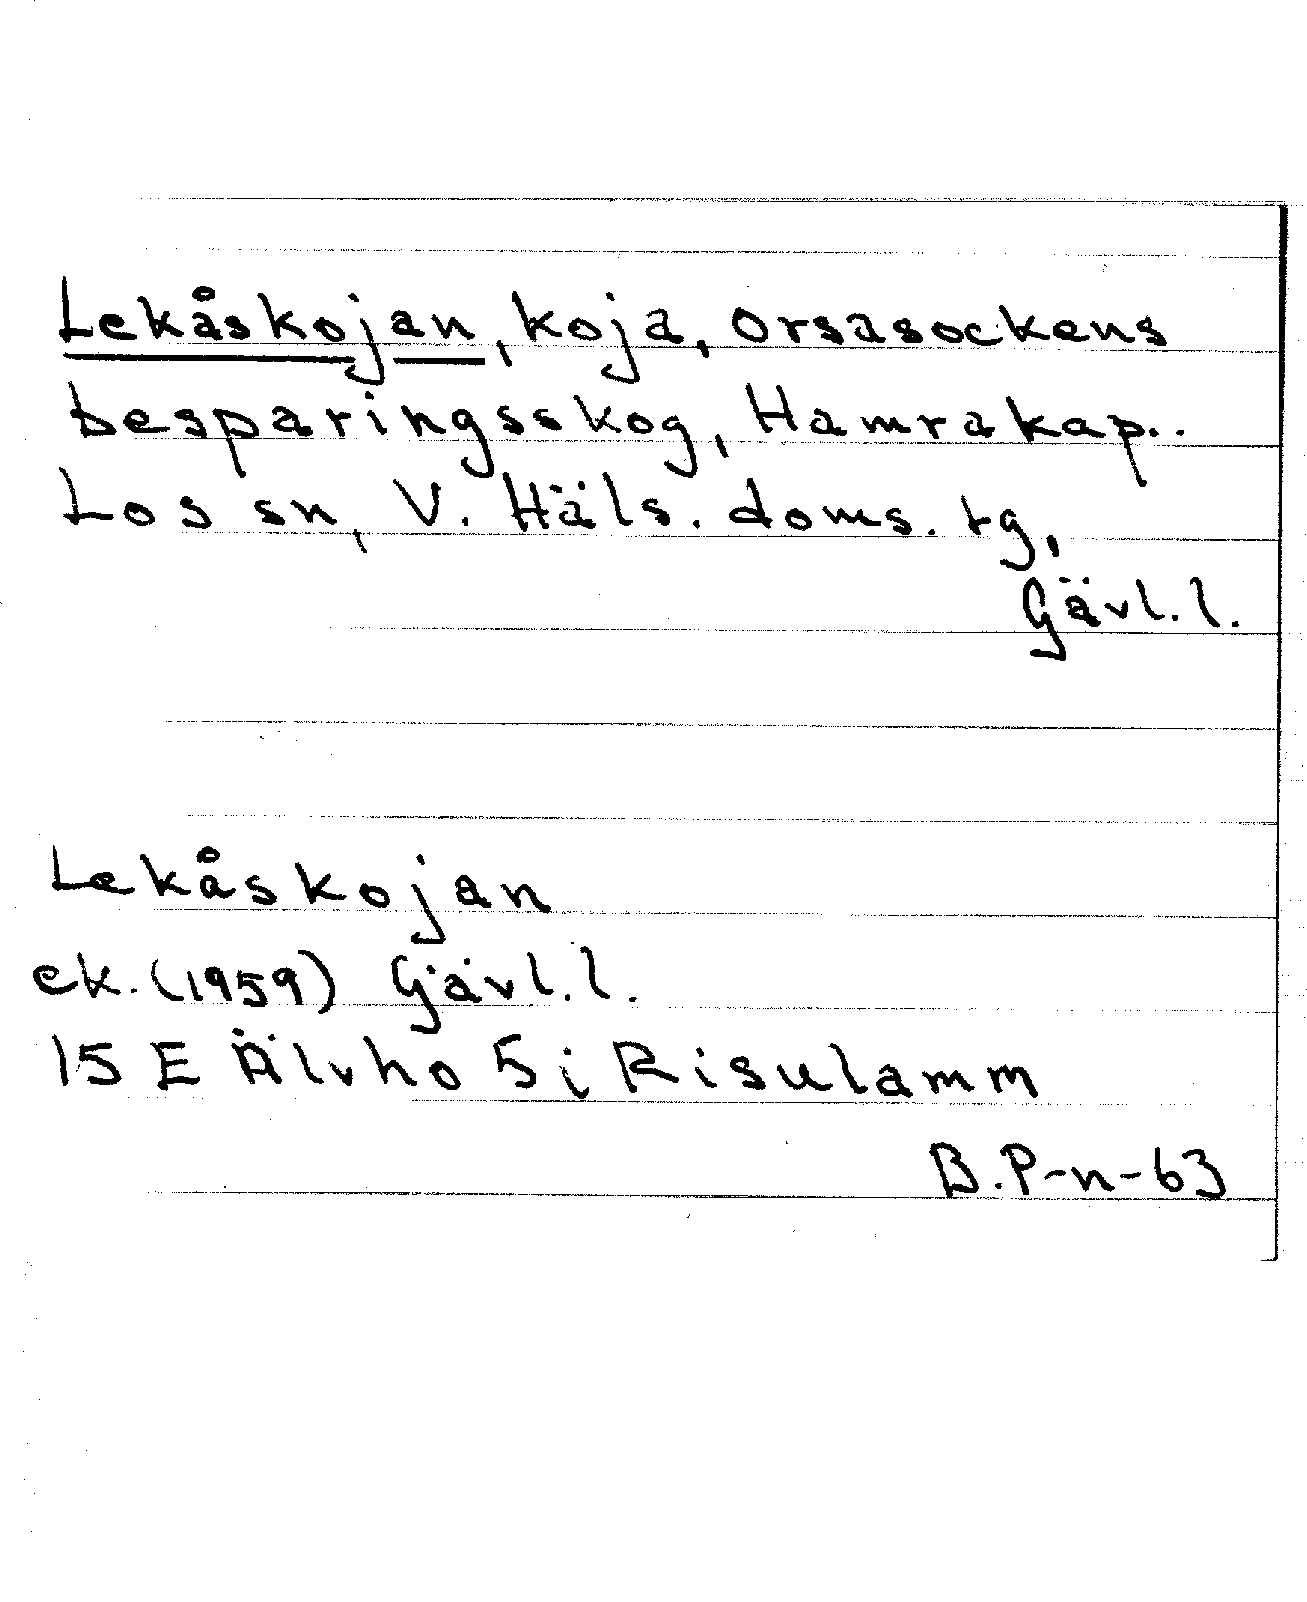 Lekåskojan, koja, Orsasockens
besparingsskog, Hamrakap..
Los sn, V. Häls. doms. tg,
Gävl. l.
Lekåskojan
ek. (1959) Gävl. l.
15 E Älvho 5 i Risulamm
B. P-n-63